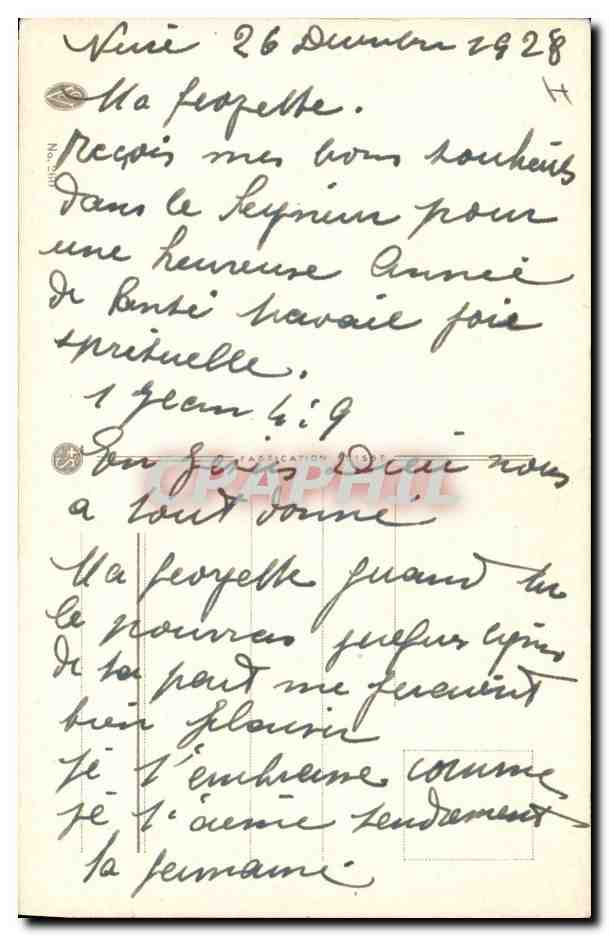 26 Decembre 1928
Ma Georgette.
Reçois mes bons souhaits
dans le Seigneur pour
une heureuse Année
de santé travail joie
spirituelle.
1 Jean 4:9
FABRICATION SUISSE
En Jésus Dieu nous
a tout donné
CPAPHIL
Ma Georgette quand tu
le pourras quelques lignes
de ta part me feraient
bien plaisir
je t'embrasse comme
je t'aime tendrement
ta Germaine